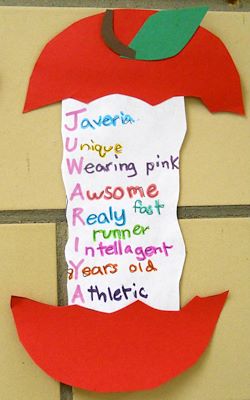 Javeria
Unique
Wearing pink
Awsome
Realy fast
runner
Intellagent
Years old
Athletic